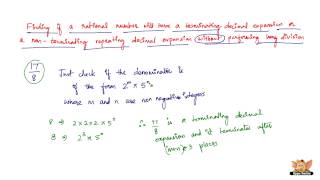 Finding if a rational number will have a terminating decimal expansion or
a non-terminating repeating decimal expansion without performing long division
17/8 Just check if the denominator is
of the form 2^m × 5^n
where m and n are non negative integers
8 ⇒ 2×2×2×5^0 ∴ 17/8 is a terminating decimal
8 ⇒ 2^3 × 5^0 expansion and it terminates after
3 places